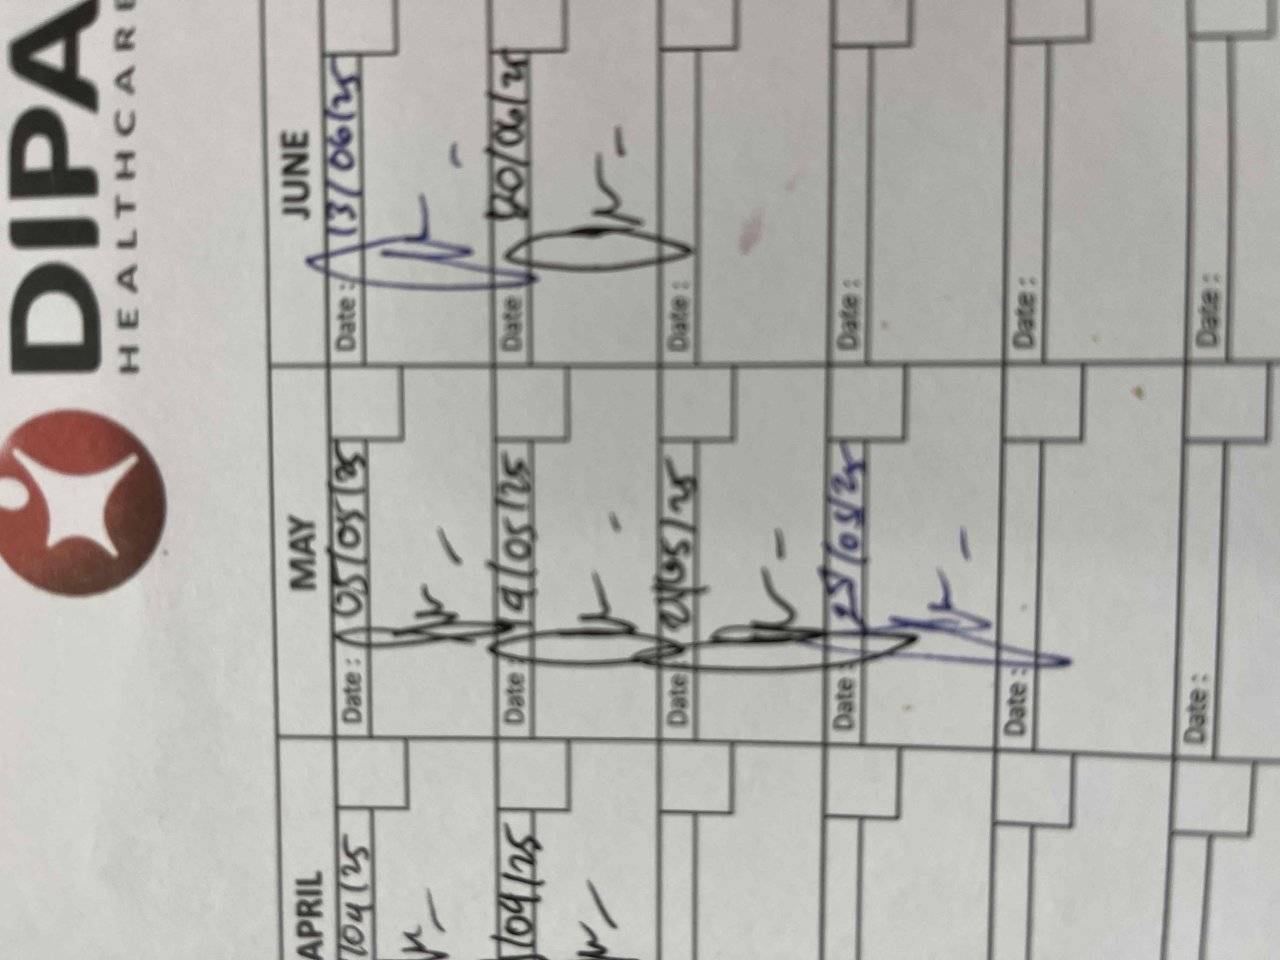 DIPA
HEALTHCARE
APRIL MAY JUNE
/04/25 Date: 05/05/25 Date: 13/06/25
/04/25 Date: 9/05/25 Date: 20/06/25
Date: /05/25 Date:
Date: 25/05/25 Date:
Date: Date:
Date: Date: